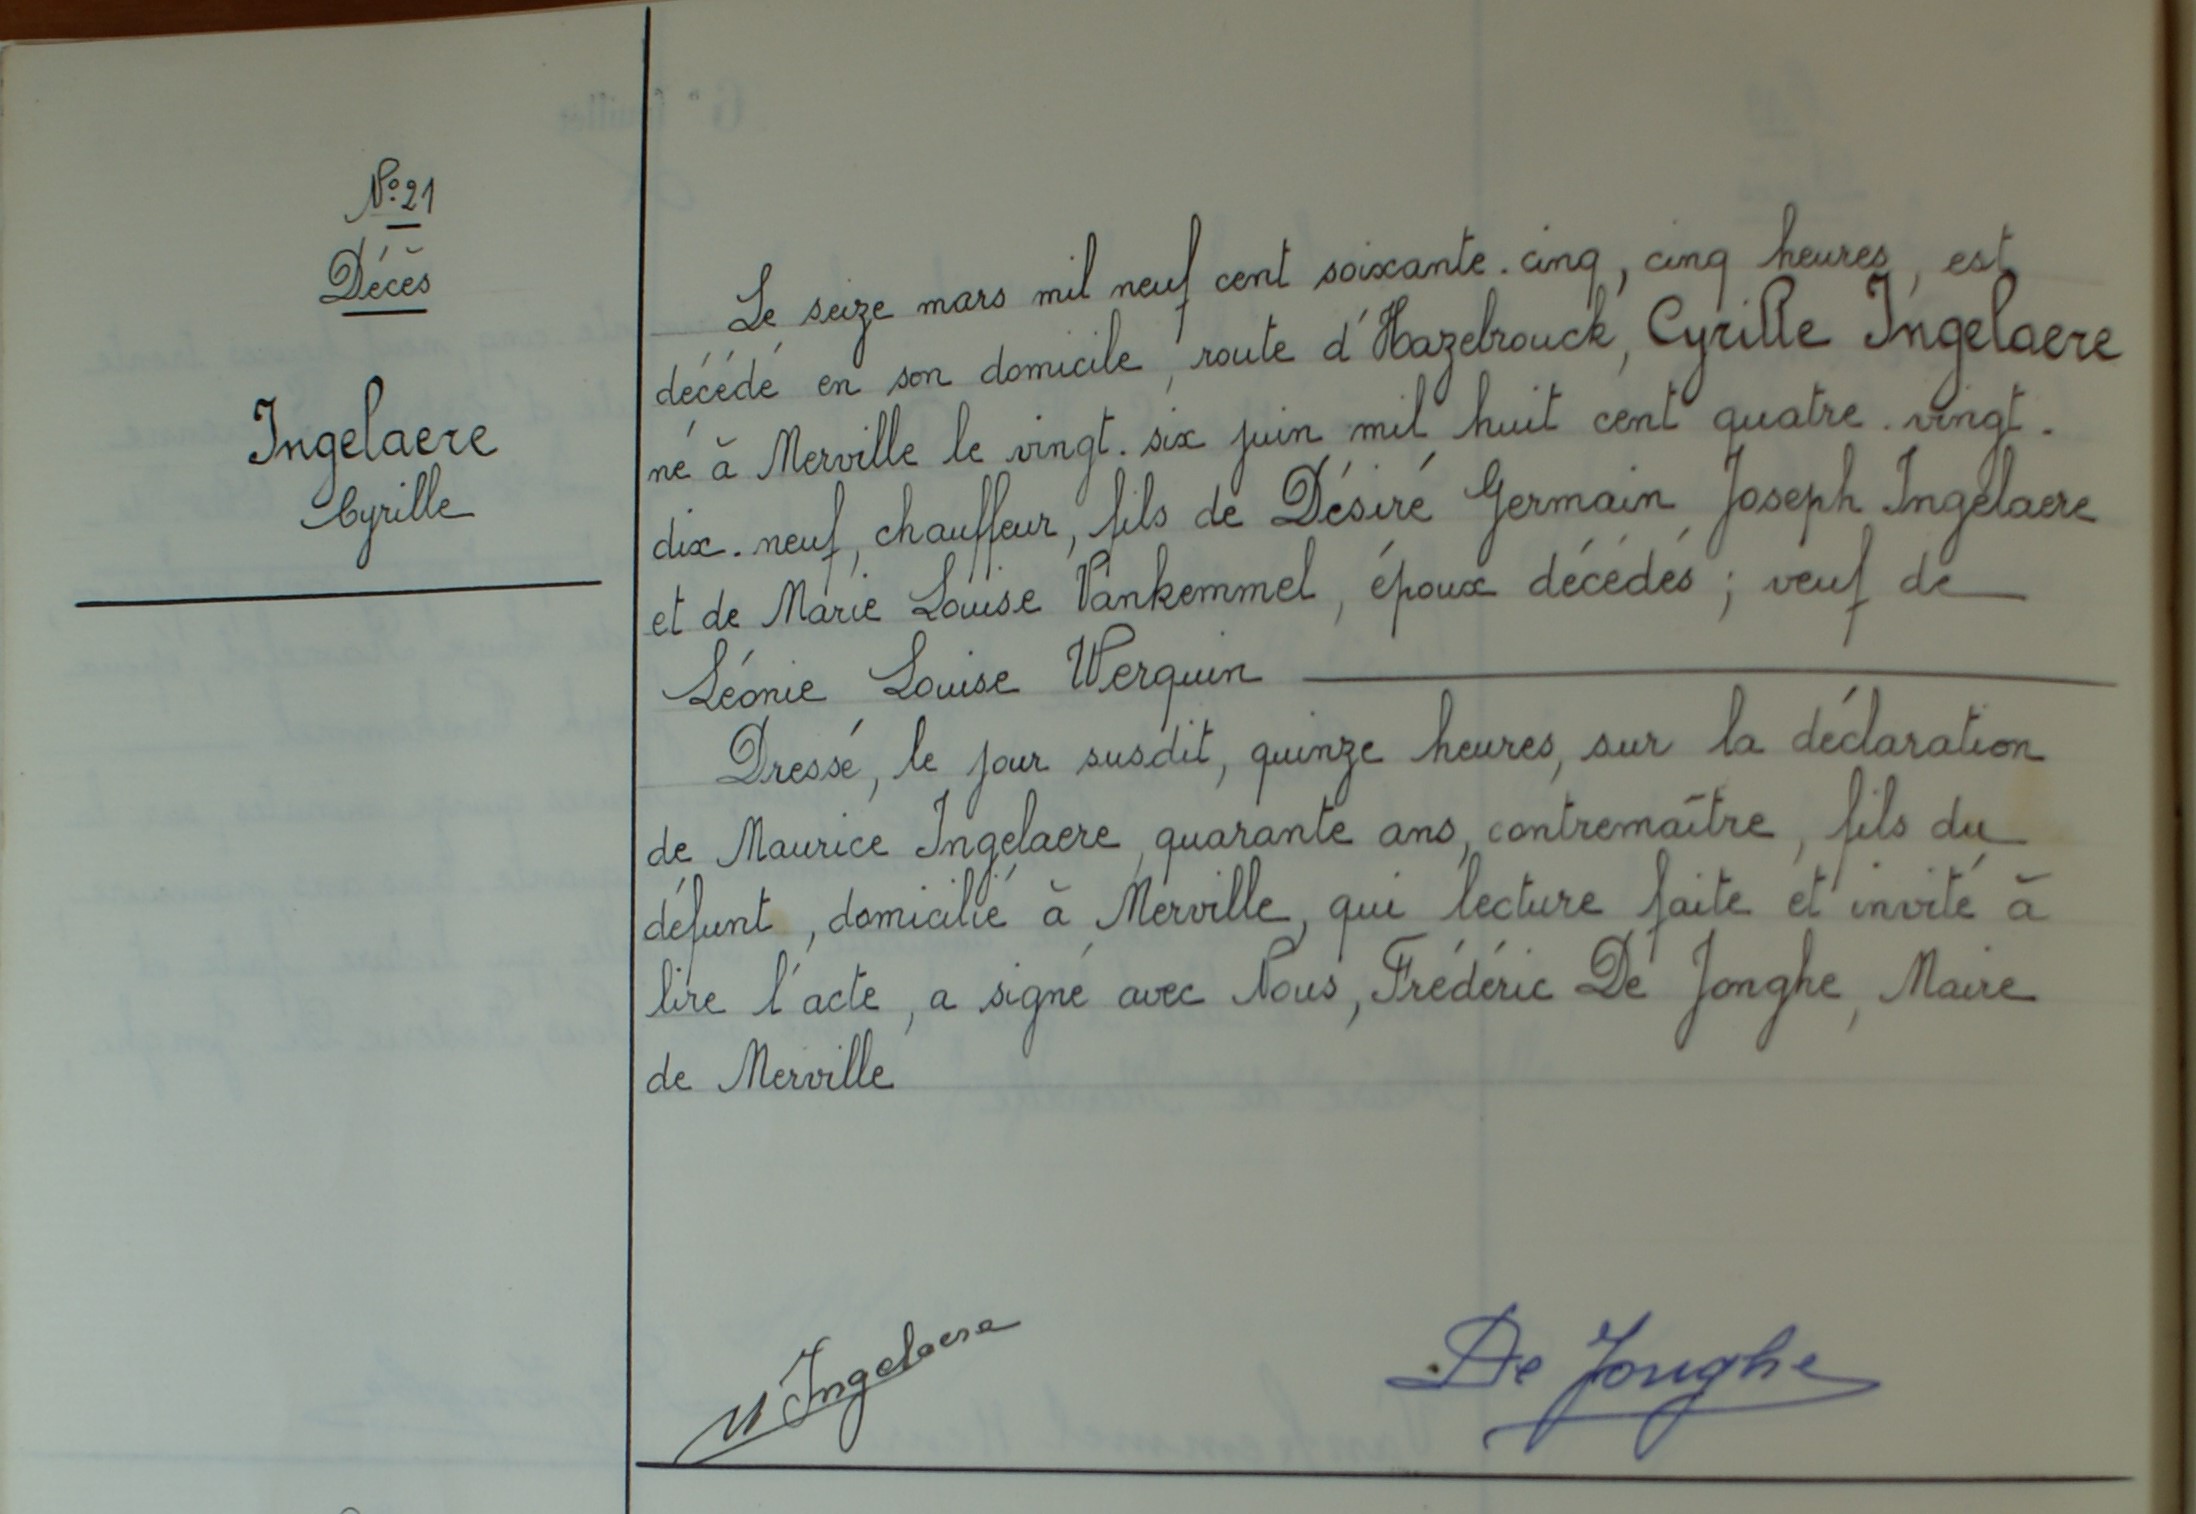 N° 21
Décès
Ingelaere
Cyrille
Le seize mars mil neuf cent soixante-cinq, cinq heures, est
décédé en son domicile, route d'Hazebrouck, Cyrille Ingelaere
né à Merville le vingt-six juin mil huit cent quatre-vingt-
dix-neuf, chauffeur, fils de Désiré Germain Joseph Ingelaere
et de Marie Louise Vankemmel, époux décédés ; veuf de
Léonie Louise Werquin
Dressé, le jour susdit, quinze heures, sur la déclaration
de Maurice Ingelaere, quarante ans, contremaître, fils du
défunt, domicilié à Merville, qui lecture faite et invité à
lire l'acte, a signé avec Nous, Frédéric De Jonghe, Maire
de Merville
M Ingelaere
De Jonghe